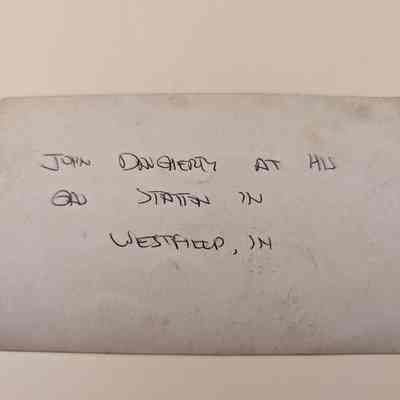 JOHN DAUGHERTY AT HIS
GAS STATION IN
WESTFIELD, IN